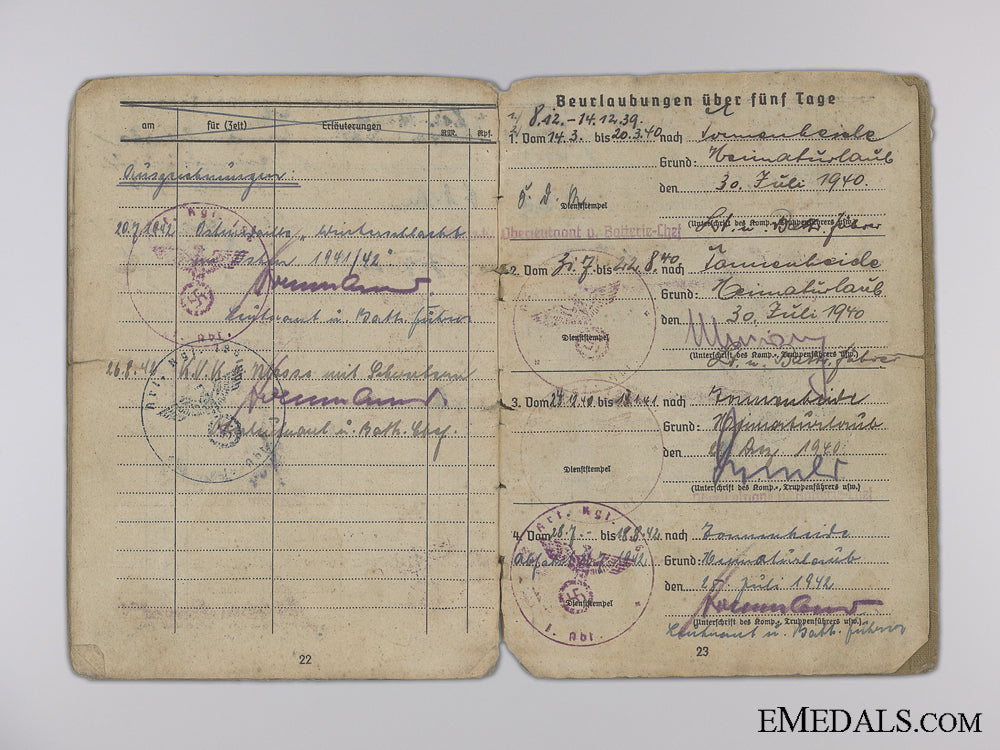 am für (Zeit) Erläuterungen RM. Rpf.
Auszeichnungen:
20.7.1942 Ostmedaille „Winterschlacht
im Osten 1941/42"
Leutnant u. Battr. führer
26.8.44 K.V.K. Klasse mit Schwertern
u. Battr. Chef.
22
Beurlaubungen über fünf Tage
8.12.-14.12.39.
1. Vom 14.3. bis 20.3.40 nach Tannenheide
Grund: Heimaturlaub
den 30. Juli 1940.
Dienststempel
(Unterschrift des Komp.-, Truppenführers usw.)
Oberleutnant u. Batterie-Chef
Lt. u. Battr. führer
2. Vom 31.7. bis 22.8.40 nach Tannenheide
Grund: Heimaturlaub
den 30. Juli 1940
Dienststempel
(Unterschrift des Komp.-, Truppenführers usw.)
Lt. u. Battr. führer
3. Vom 29.12.40 bis 18.1.41 nach Tannenheide
Grund: Heimaturlaub
den 1940
Dienststempel
(Unterschrift des Komp.-, Truppenführers usw.)
4. Vom 28.7. bis 18.8.42 nach Tannenheide
1942 Grund: Heimaturlaub
den 25. Juli 1942
Dienststempel
(Unterschrift des Komp.-, Truppenführers usw.)
Leutnant u. Battr. führer
Art. Rgt.
I. Abt.
23
EMEDALS.COM